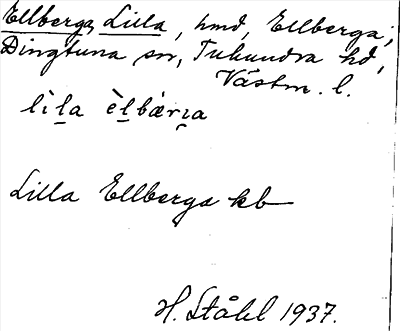 Ellberga, Lilla, hmd, Ellberga;
Dingtuna sn, Tuhundra hd,
Västm. l.
lìḷa èḷbærı̯a
Lilla Ellberga kb
H. Ståhl 1937.